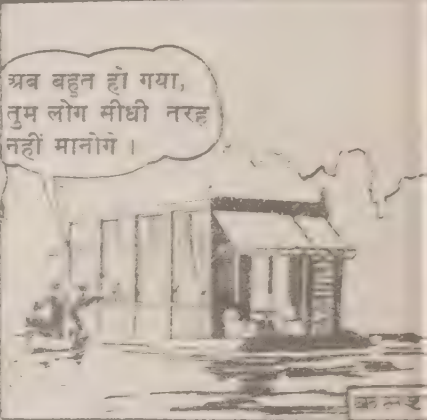 अब बहुत हो गया,
तुम लोग सीधी तरह
नहीं मानोगे ।